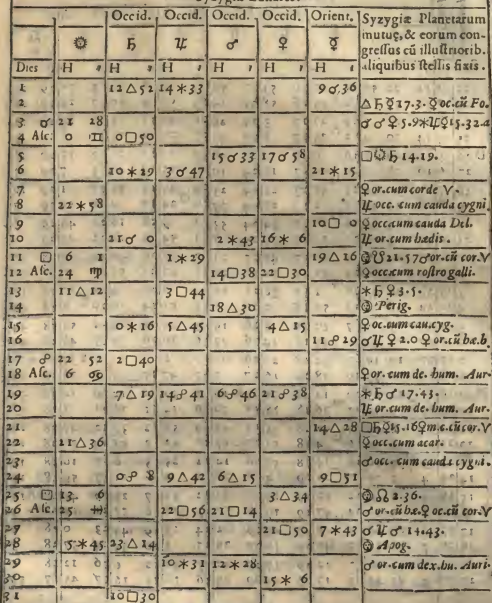 Occid. Occid. Occid. Occid. Orient. Syzygiæ Planetarum
☉ ♄ ♃ ♂ ♀ ☿ mutuę, & eorum con-
gressus cū illustriorib.
Dies H ′ H ′ H ′ H ′ H ′ H ′ aliquibus stellis fixis.
1 12△52 14⚹33 9☌36
2 △♄☿17.3. ☿oc.cū Fo.
3 ☌ 21 28 ☌♂♀5.9⚹♃♀15.32.a
4 Asc. 0 ♊ 0□50
5 15☌33 17☌58 □☉♄14.19.
6 10⚹19 3☌47 21⚹15
7 ♀or.cum corde ♈.
8 22⚹58 ♃occ.cum cauda cygni.
9 10□0 ♀occ.cum cauda Del.
10 21☌0 2⚹43 16⚹6 ♃or.cum hædis.
11 □ 6 1 1⚹29 19△16 21.57♂or.cū cor.♈
12 Asc. 24 ♍ 14□38 22□30 ♀occ.cum rostro galli.
13 11△12 3□44 ⚹♄♀3.5.
14 18△30 Perig.
15 0⚹16 5△45 4△15 ♀oc.cum cau.cyg.
16 11☍29 ☌♃♀2.0 ♀or.cū hæ.b
17 ☍ 22 52 2□40
18 Asc. 6 ♋ ♀or.cum de.hum. Aur.
19 7△19 14☍41 6☍46 21☍38 ⚹♄♂17.43.
20 ♃or.cum de.hum. Aur.
21 14△28 □♄♀15.16♀m.c.cū cor.♈
22 11△36 ♀occ.cum acar.
23 ♂occ.cum cauda cygni.
24 0☍8 9△42 6△15 9□51
25 □ 13 6 3△34 ☊2.36.
26 Asc. 25 ♓ 22□56 21□14 ♂or.cū hæ.♀oc.cū cor.♈
27 21□50 7⚹43 ☌♃♂14.43.
28 5⚹45 23△14 Apog.
29 10⚹31 12⚹28 ♂or.cum dex.hu. Auri.
30 15⚹6
31 10□30